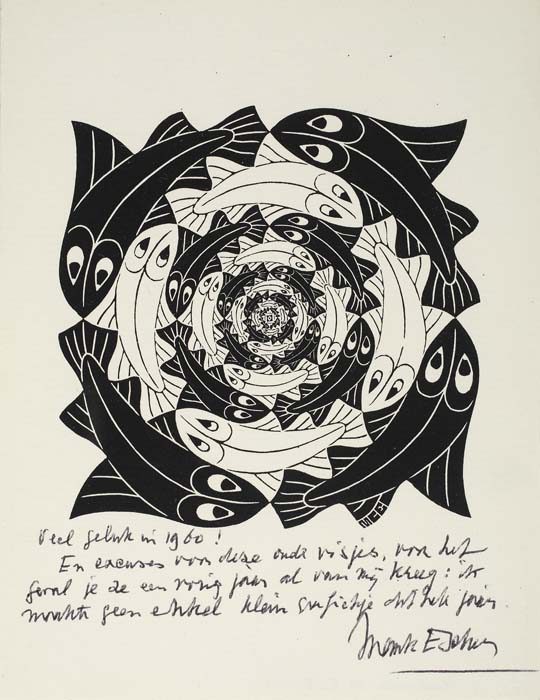 Veel geluk in 1960!
En excuses voor deze oude visjes, voor het
geval je ze een vorig jaar al van mij kreeg: ik
maakte geen enkel klein grafiekje dit hele jaar.
Mauk Escher
MCE